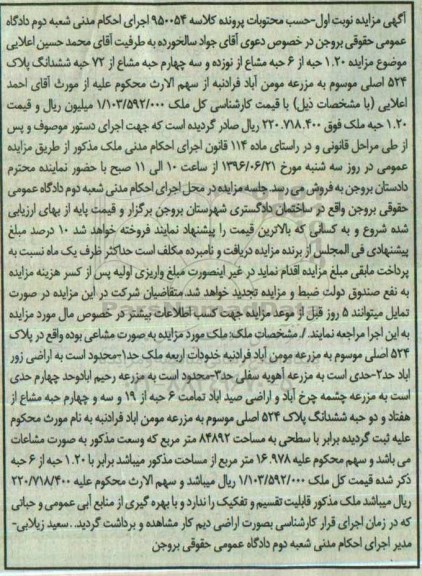 آگهی مزایده نوبت اول-حسب محتویات پرونده کلاسه ۹۵۰۰۵۴ اجرای احکام مدنی شعبه دوم دادگاه
عمومی حقوقی بروجن در خصوص دعوی آقای جواد سالخورده به طرفیت آقای محمد حسین اعلایی
موضوع مزایده ۱.۲۰ حبه از ۶ حبه مشاع از نوزده و سه چهارم حبه مشاع از ۷۲ حبه ششدانگ پلاک
۵۲۴ اصلی موسوم به مزرعه مومن آباد فرادنبه از سهم الارث محکوم علیه از مورث آقای احمد
اعلایی (با مشخصات ذیل) با قیمت کارشناسی کل ملک ۱/۱۰۳/۵۹۲/۰۰۰ میلیون ریال و قیمت
۱.۲۰ حبه ملک فوق ۲۲۰.۷۱۸.۴۰۰ ریال صادر گردیده است که جهت اجرای دستور موصوف و پس
از طی مراحل قانونی و در راستای ماده ۱۱۴ قانون اجرای احکام مدنی ملک مذکور از طریق مزایده
عمومی در روز سه شنبه مورخ ۱۳۹۶/۰۶/۲۱ از ساعت ۱۰ الی ۱۱ صبح با حضور نماینده محترم
دادستان بروجن به فروش می رسد. جلسه مزایده در محل اجرای احکام مدنی شعبه دوم دادگاه عمومی
حقوقی بروجن واقع در ساختمان دادگستری شهرستان بروجن برگزار و قیمت پایه از بهای ارزیابی
شده شروع و به کسانی که بالاترین قیمت را پیشنهاد نمایند فروخته خواهد شد ۱۰ درصد مبلغ
پیشنهادی فی المجلس از برنده مزایده دریافت و نامبرده مکلف است حداکثر ظرف یک ماه نسبت به
پرداخت مابقی مبلغ مزایده اقدام نماید در غیر اینصورت مبلغ واریزی اولیه پس از کسر هزینه مزایده
به نفع صندوق دولت ضبط و مزایده تجدید خواهد شد.متقاضیان شرکت در این مزایده در صورت
تمایل میتوانند ۵ روز قبل از موعد مزایده جهت کسب اطلاعات بیشتر در خصوص مال مورد مزایده
به این اجرا مراجعه نمایند. /.مشخصات ملک: ملک مورد مزایده به صورت مشاعی بوده واقع در پلاک
۵۲۴ اصلی موسوم به مزرعه مومن آباد فرادنبه خدودات اربعه ملک حد۱-محدود است به اراضی زور
اباد حد۲-حدی است به مزرعه آهویه سفلی حد۳-محدود است به مزرعه رحیم ابادوحد چهارم حدی
است به مزرعه چشمه چرخ آباد و اراضی صید آباد تمامت ۶ حبه از ۱۹ و سه و چهارم حبه مشاع از
هفتاد و دو حبه ششدانگ پلاک ۵۲۴ اصلی موسوم به مزرعه مومن اباد فرادنبه به نام مورث محکوم
علیه ثبت گردیده برابر با سطحی به مساحت ۸۴۸۹۲ متر مربع که وسعت مذکور به صورت مشاعات
می باشد و سهم محکوم علیه ۱۶.۹۷۸ متر مربع از مساحت مذکور میباشد برابر با ۱.۲۰ حبه از ۶ حبه
ذکر شده قیمت کل ملک ۱/۱۰۳/۵۹۲/۰۰۰ ریال میباشد و سهم الارث محکوم علیه ۲۲۰/۷۱۸/۴۰۰
ریال میباشد ملک مذکور قابلیت تقسیم و تفکیک را ندارد و با بهره گیری از منابع آبی عمومی و حبانی
که در زمان اجرای قرار کارشناسی بصورت اراضی دیم کار مشاهده و برداشت گردید..سعید زیلابی-
مدیر اجرای احکام مدنی شعبه دوم دادگاه عمومی حقوقی بروجن